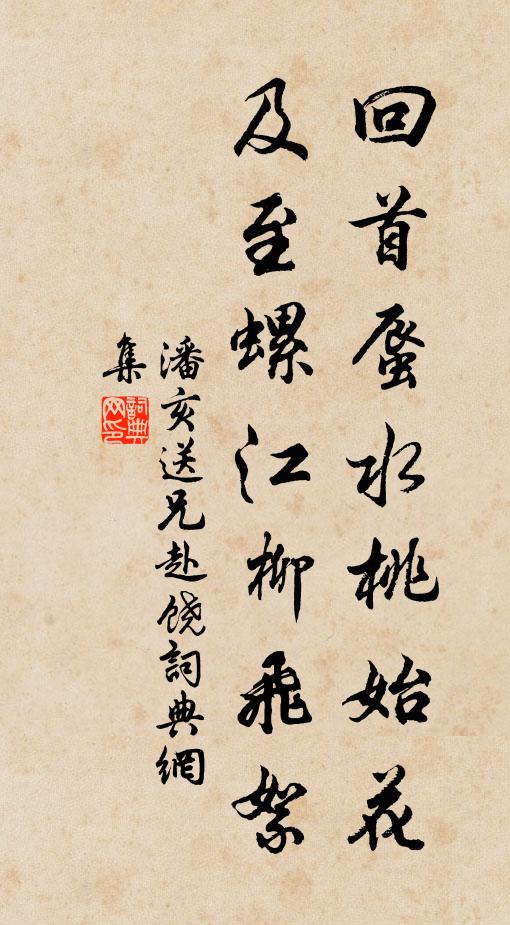 回首蜃水桃始花
及至螺江柳飛絮
潘亥送兄赴饒詞典網
集
詞典網印